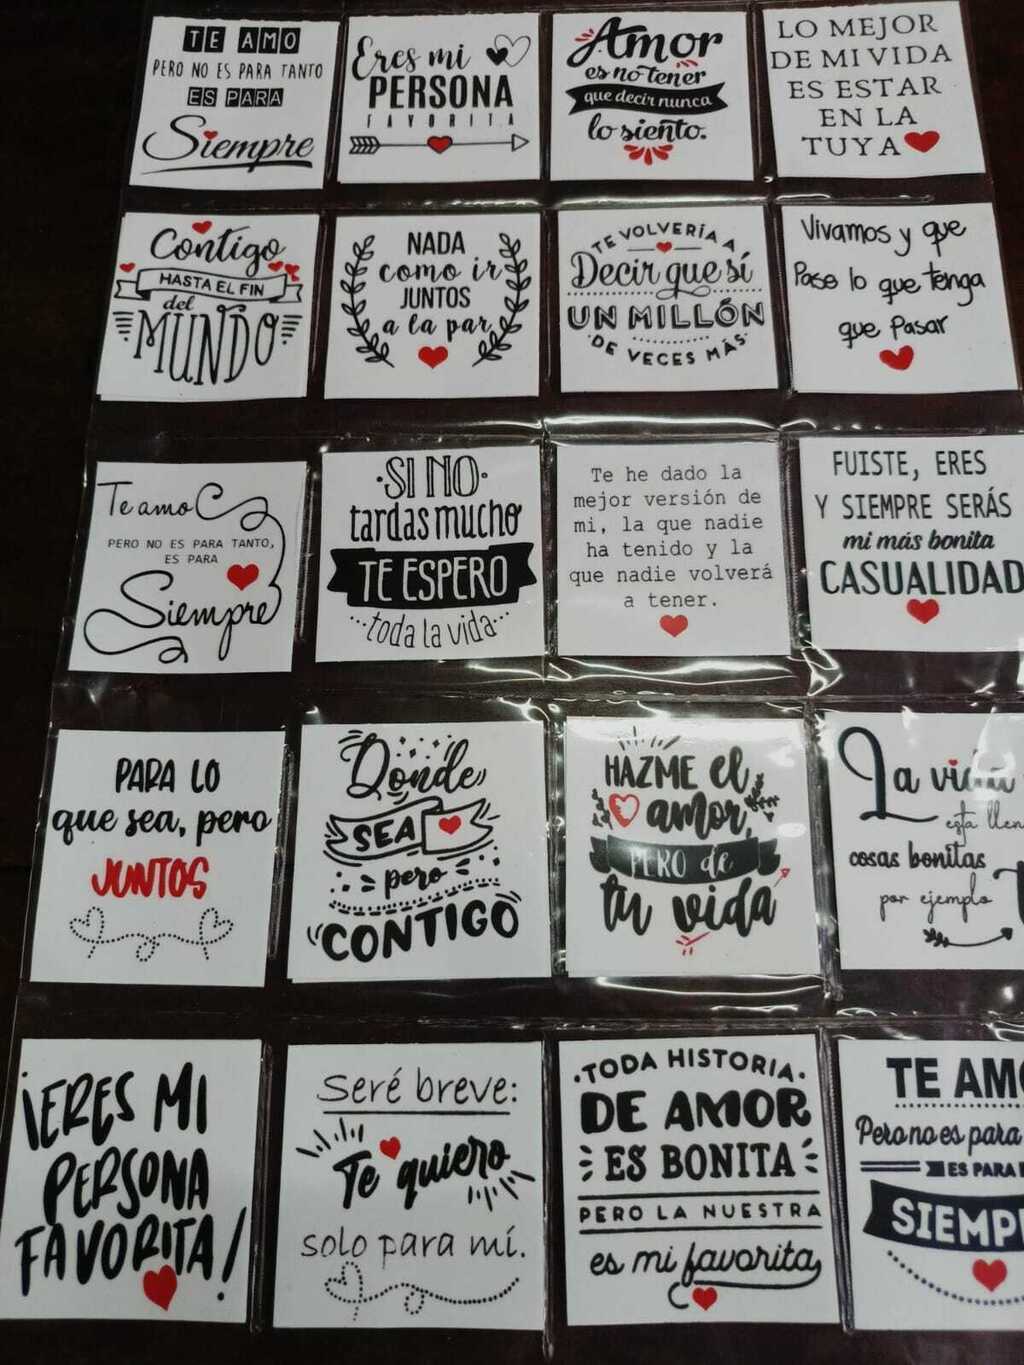 TE AMO
PERO NO ES PARA TANTO
ES PARA
Siempre
Eres mi
PERSONA
FAVORITA
Amor
es no tener
que decir nunca
lo siento.
LO MEJOR
DE MI VIDA
ES ESTAR
EN LA
TUYA
Contigo
HASTA EL FIN
del
MUNDO
NADA
como ir
JUNTOS
a la par
TE VOLVERÍA A
Decir que sí
UN MILLÓN
DE VECES MÁS
Vivamos y que
Pase lo que tenga
que Pasar
Te amo
PERO NO ES PARA TANTO,
ES PARA
Siempre
SI NO
tardas mucho
TE ESPERO
toda la vida
Te he dado la
mejor versión de
mi, la que nadie
ha tenido y la
que nadie volverá
a tener.
FUISTE, ERES
Y SIEMPRE SERÁS
mi más bonita
CASUALIDAD
PARA LO
que sea, pero
JUNTOS
Donde
SEA
pero
CONTIGO
HAZME el
amor,
PERO de
tu vida
La vida
esta
cosas bonitas
por ejemplo
¡ERES MI
PERSONA
FAVORITA!
Seré breve:
Te quiero
solo para mí.
TODA HISTORIA
DE AMOR
ES BONITA
PERO LA NUESTRA
es mi favorita
TE
Pero no es para
ES PARA